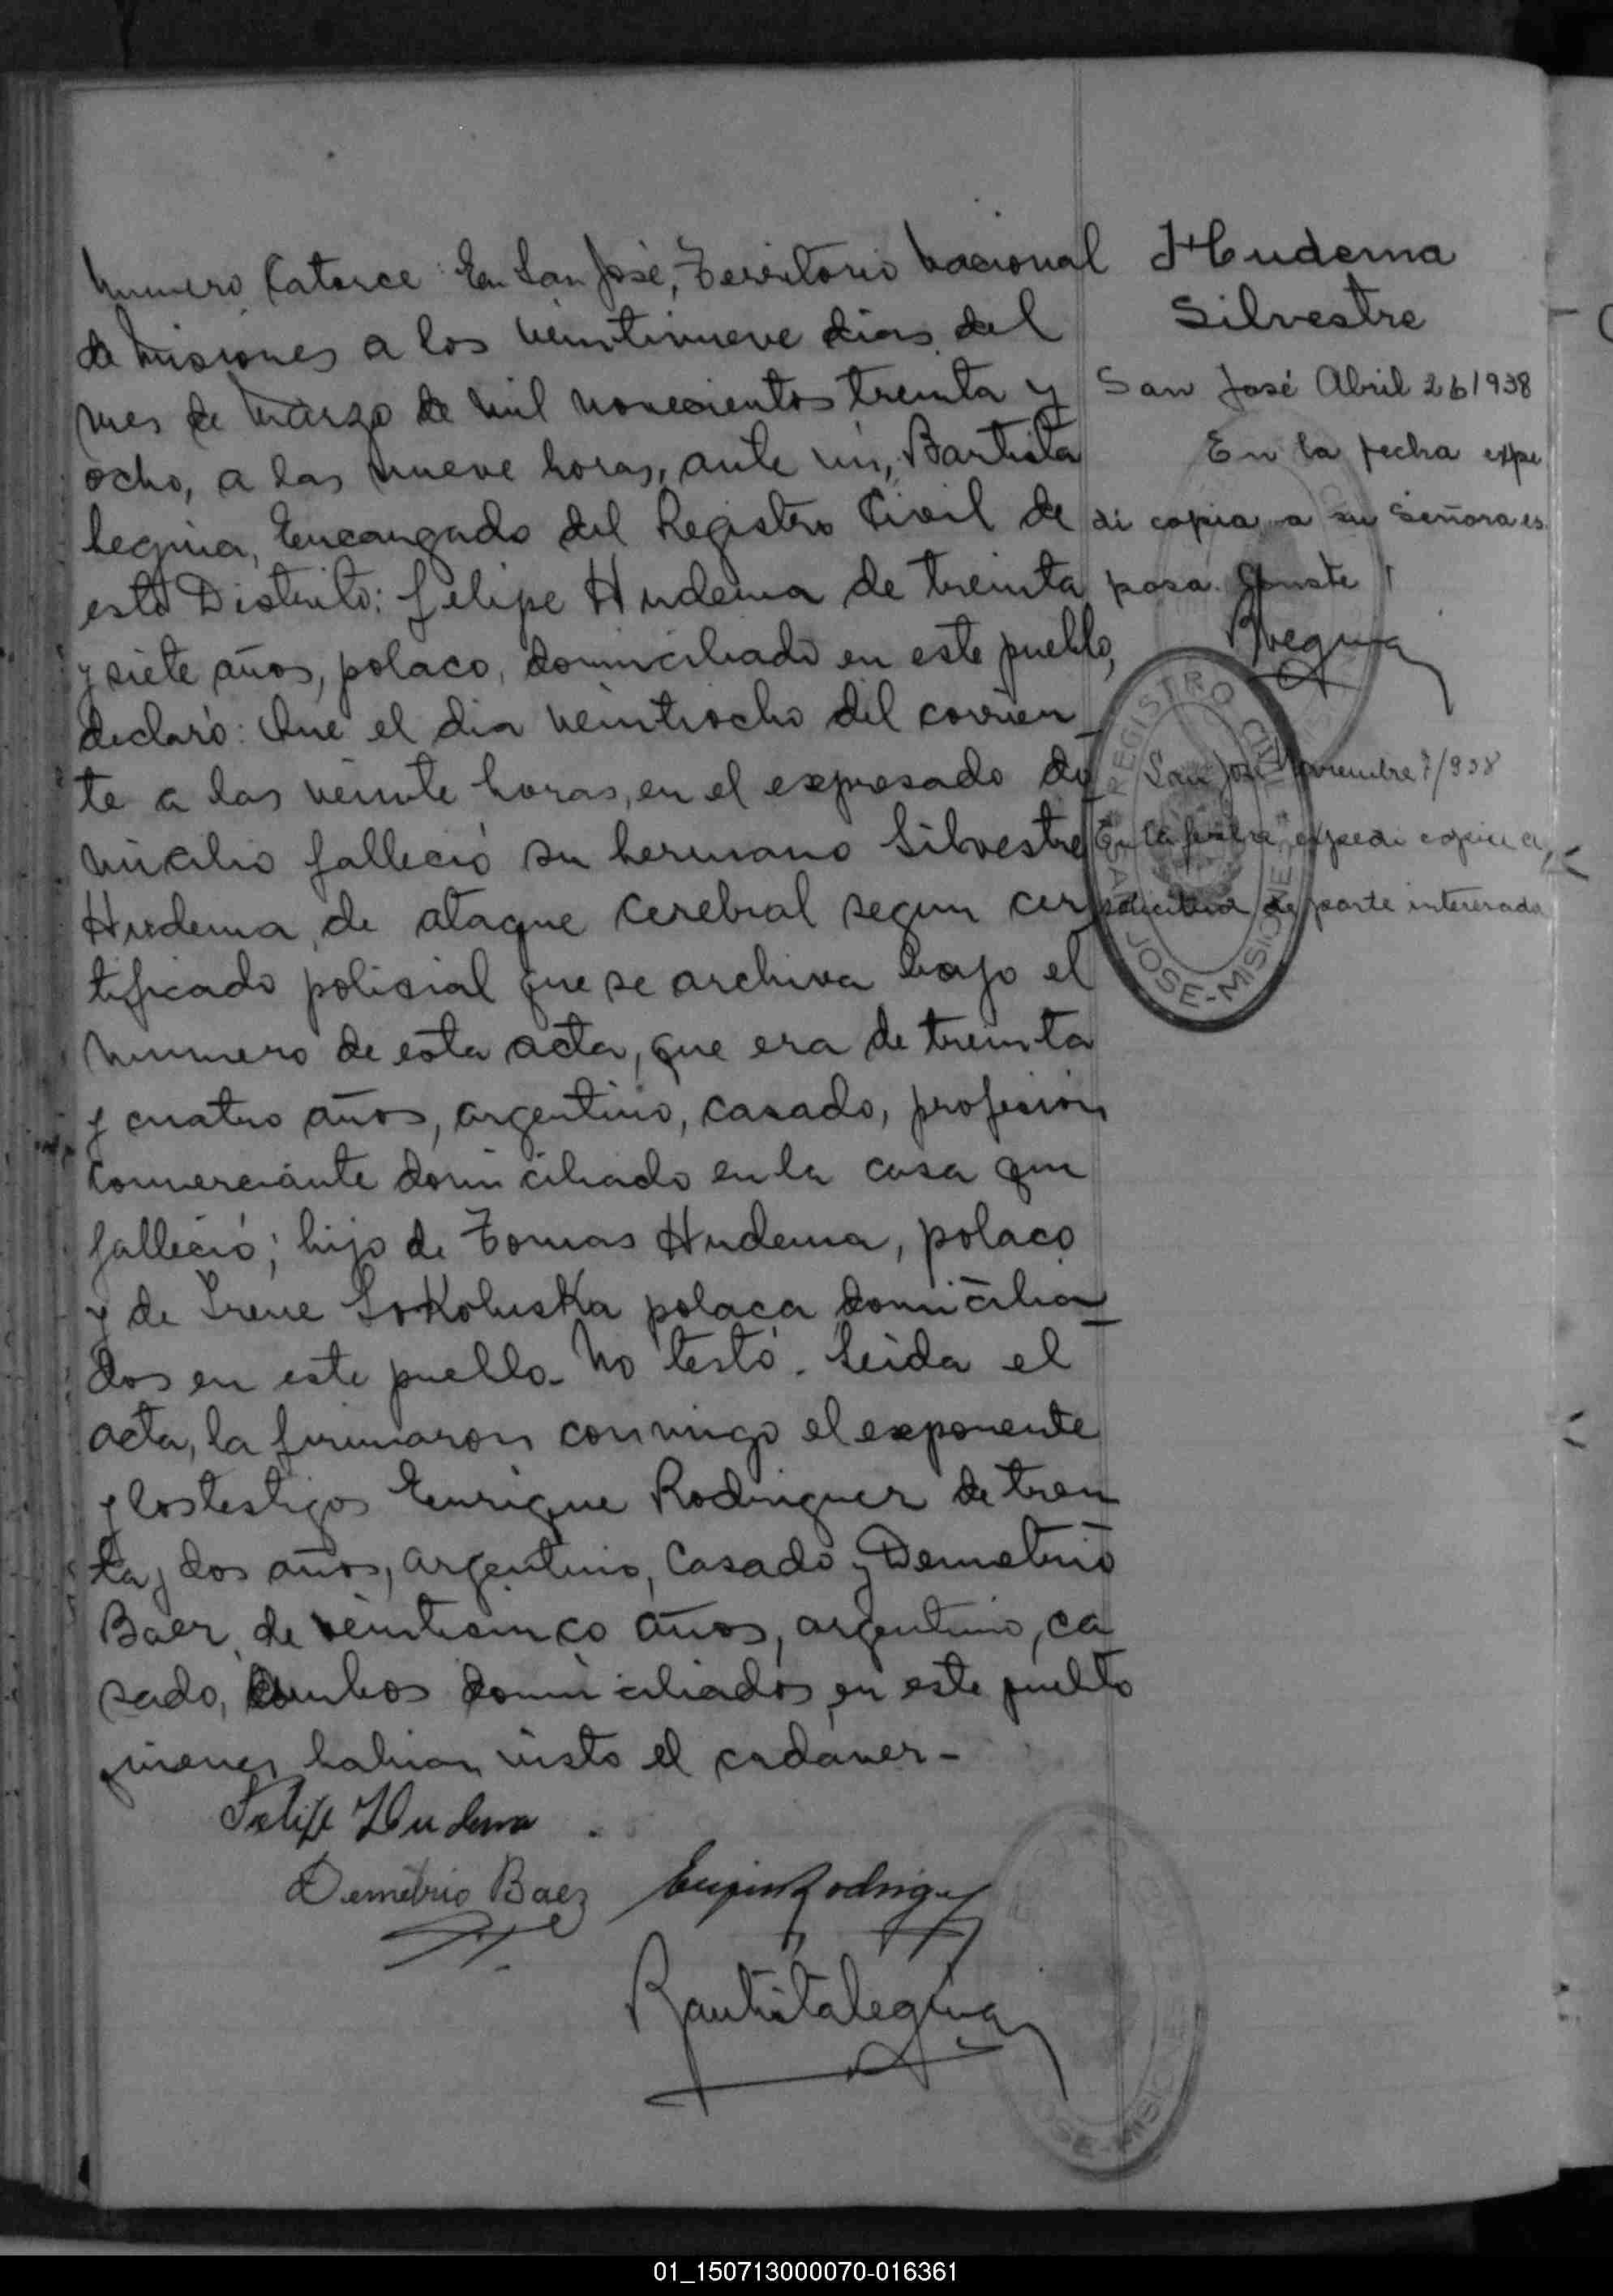 Numero Catorce: En San José, Territorio Nacional
de Misiones a los veintinueve dias del
mes de Marzo de mil novecientos treinta y
ocho, a las nueve horas, ante mi, Bautista
Leguia, Encargado del Registro Civil de
este Distrito: Felipe Hudema de treinta
y siete años, polaco, domiciliado en este pueblo,
declaró: Que el dia veintiocho del corrien
te a las veinte horas, en el expresado do
micilio falleció su hermano Silvestre
Hudema, de ataque cerebral segun cer
tificado polisial que se archiva bajo el
numero de esta acta, que era de treinta
y cuatro años, argentino, casado, profesion
comerciante domiciliado en la casa que
falleció; hijo de Tomas Hudema, polaco
y de Irene Sokoluska polaca domicilia
dos en este pueblo. No testó. Leida el
acta, la firmaron conmigo el exponente
y los testigos Enrique Rodriguez de trein
ta y dos años, argentino, casado y Demetrio
Baez, de veintisinco años, argentino, ca
sado, ambos domiciliados en este pueblo
quienes habian visto el cadaver -
Felipe Hudema
Demetrio Baez
Rodriguez
Bautista Leguia
Hudema
Silvestre
San José Abril 26/938
En la fecha expe
di copia a su Señora es
posa. Conste
BLeguia
San José Noviembre 7/938
En la fecha expedi copia a
solicitud de parte interesada
REGISTRO CIVIL
SAN JOSE-MISIONES
JOSE-MISIONES
01_150713000070-016361